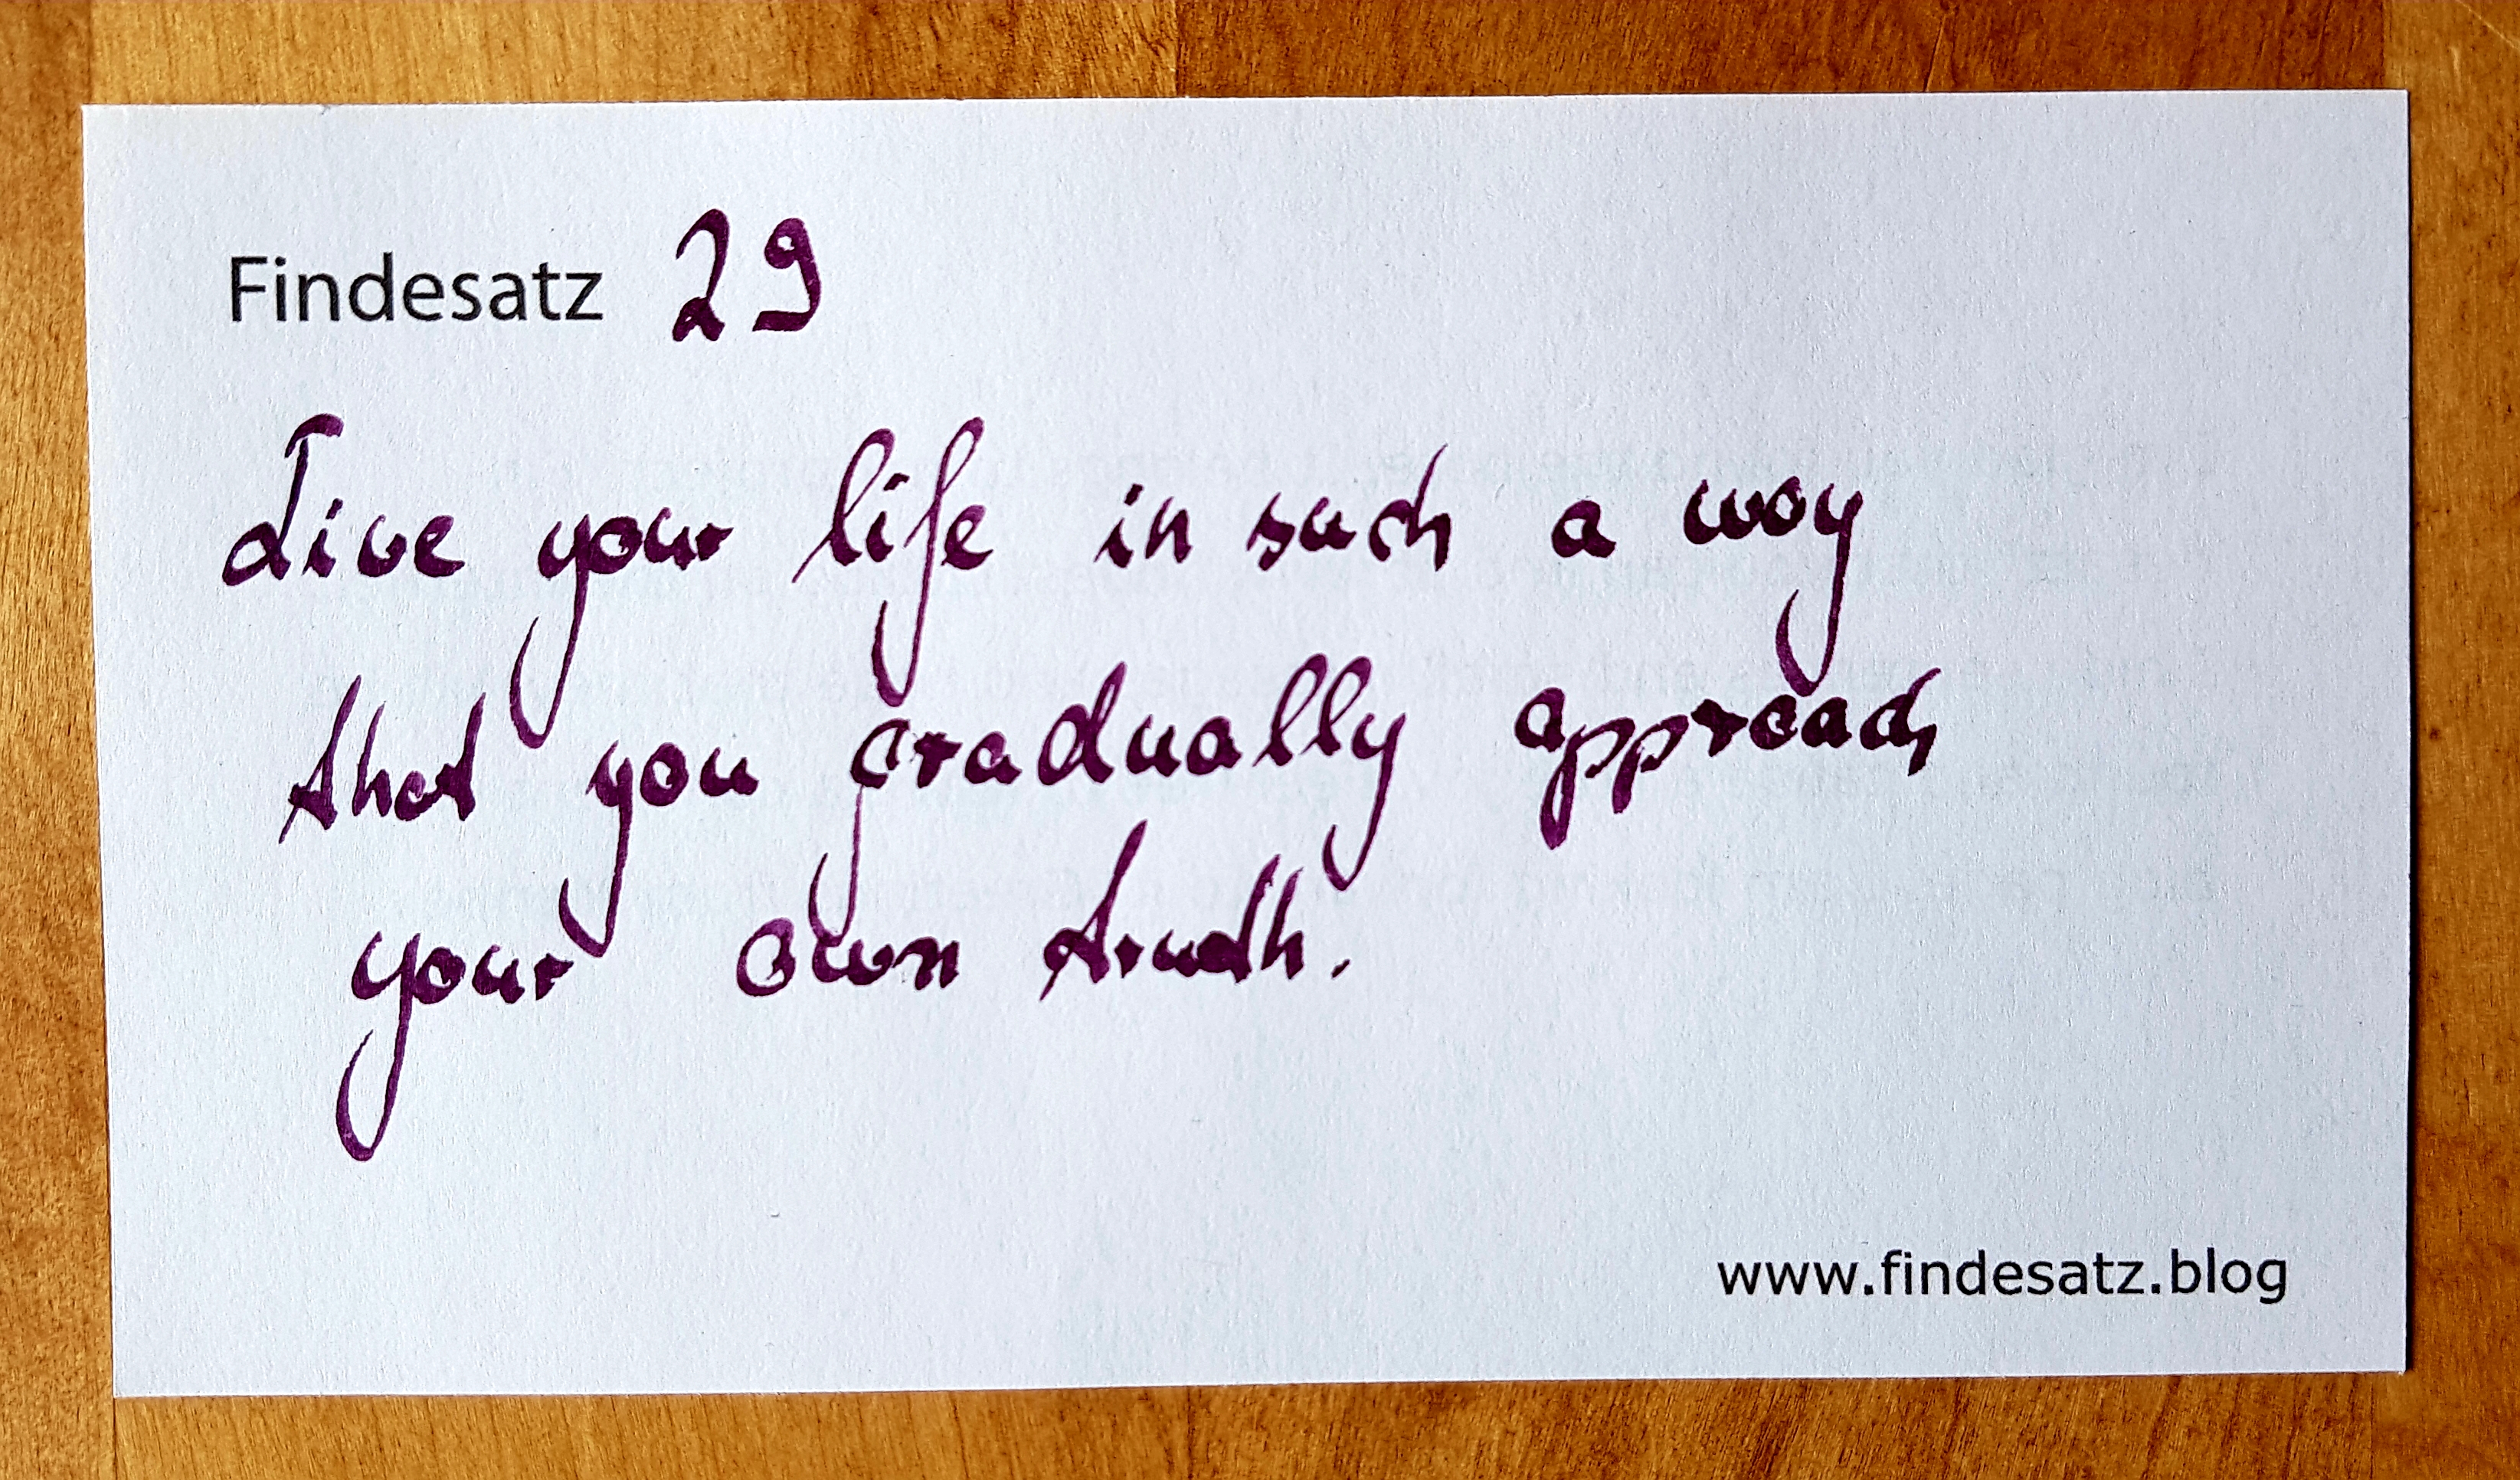 Findesatz 29
Live your life in such a way
that you gradually approach
your own truth.
www.findesatz.blog